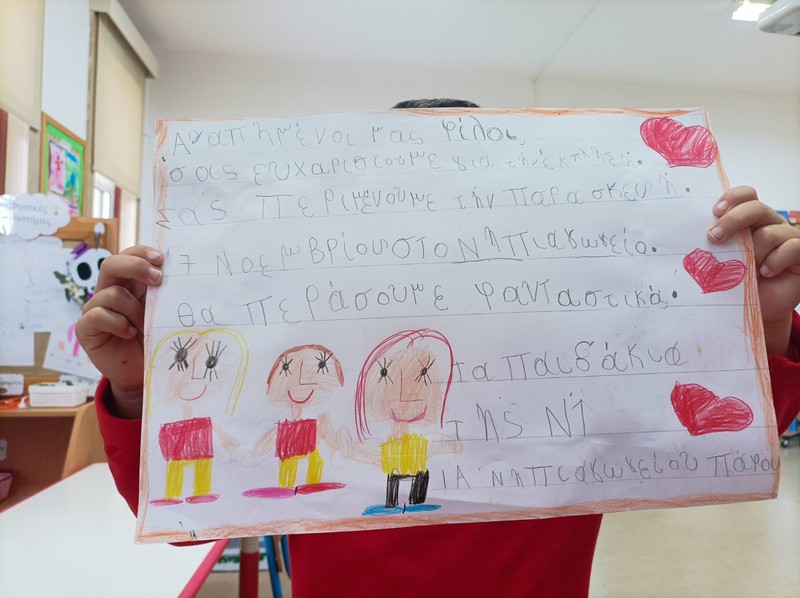 Αγαπημένοι μας φίλοι,
σας ευχαριστούμε για την έκπληξή.
Σας περιμένουμε την Παρασκευή.
7 Νοεμβρίου στο Νηπιαγωγείο.
Θα περάσουμε φανταστικά.
τα παιδάκια
της Ν1
ΙΑ΄ Νηπιαγωγείου Πάφου